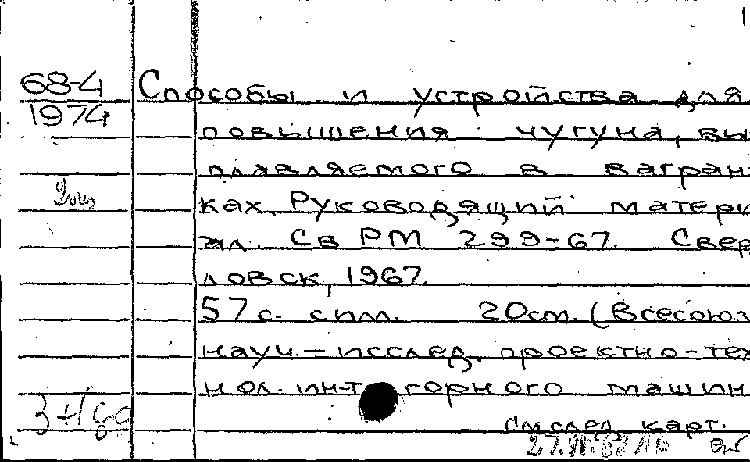 68-4
1974
Способы и устройства для
повышения чугуна, вы
плавляемого в вагран-
ках. Руководящий матери
ал. Св РМ 299-67. Свер
ловск, 1967.
57 с. с илл. 20 см. (Всесоюз
науч.-исслед. проектно-тех
нол. ин-т горного машин
См след. карт.